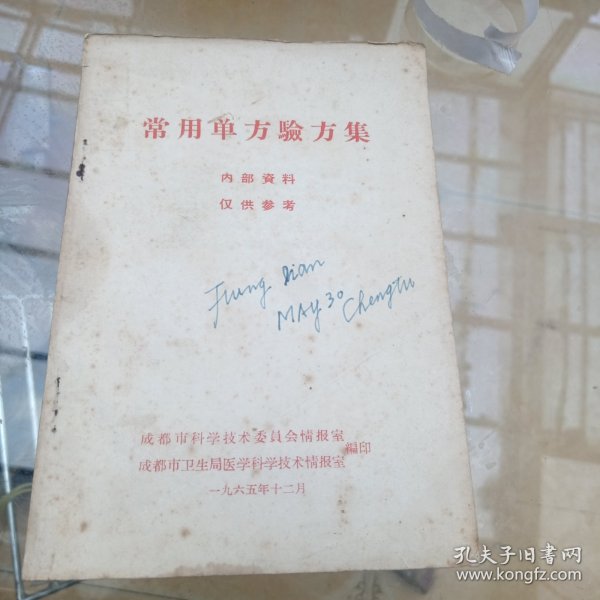 常用单方驗方集
内部資料
仅供参考
Jian
MAY 30 Chengtu
成都市科学技术委員会情报室
成都市卫生局医学科学技术情报室
編印
一九六五年十二月
孔夫子旧书网
www.kongfz.com